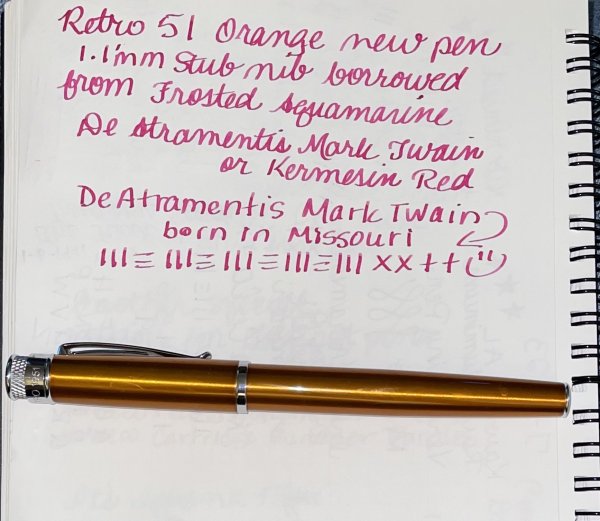 Retro 51 Orange new pen
1.1mm Stub nib borrowed
from Frosted Aquamarine
De Atramentis Mark Twain
or Kermesin Red
DeAtramentis Mark Twain
born in Missouri
III≡ III≡ III≡III≡III XX++
51